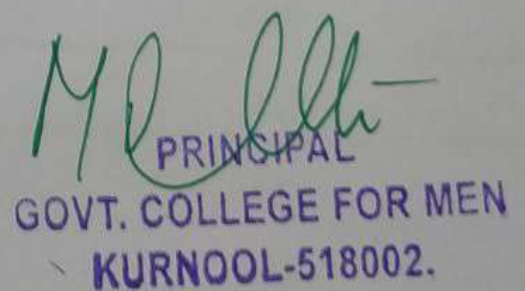 PRINCIPAL
GOVT. COLLEGE FOR MEN
KURNOOL-518002.